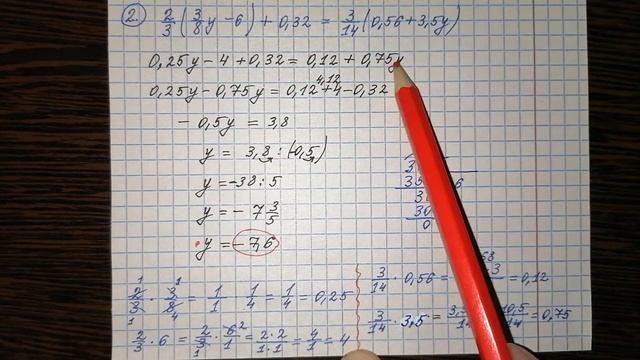 2. 2/3 (3/8 y - 6) + 0,32 = 3/14 (0,56 + 3,5y)
0,25y - 4 + 0,32 = 0,12 + 0,75y
4,12
0,25y - 0,75y = 0,12 + 4 - 0,32
- 0,5y = 3,8
y = 3,8 : (-0,5)
y = -38 : 5
y = - 7 3/5
y = -7,6
2/3 · 3/8 = 1/1 · 1/4 = 1/4 = 0,25
2/3 · 6 = 2/3 · 6/1 = 2·2/1·1 = 4/1 = 4
3/14 · 0,56 = = 0,12
3/14 · 3,5 = = 0,75